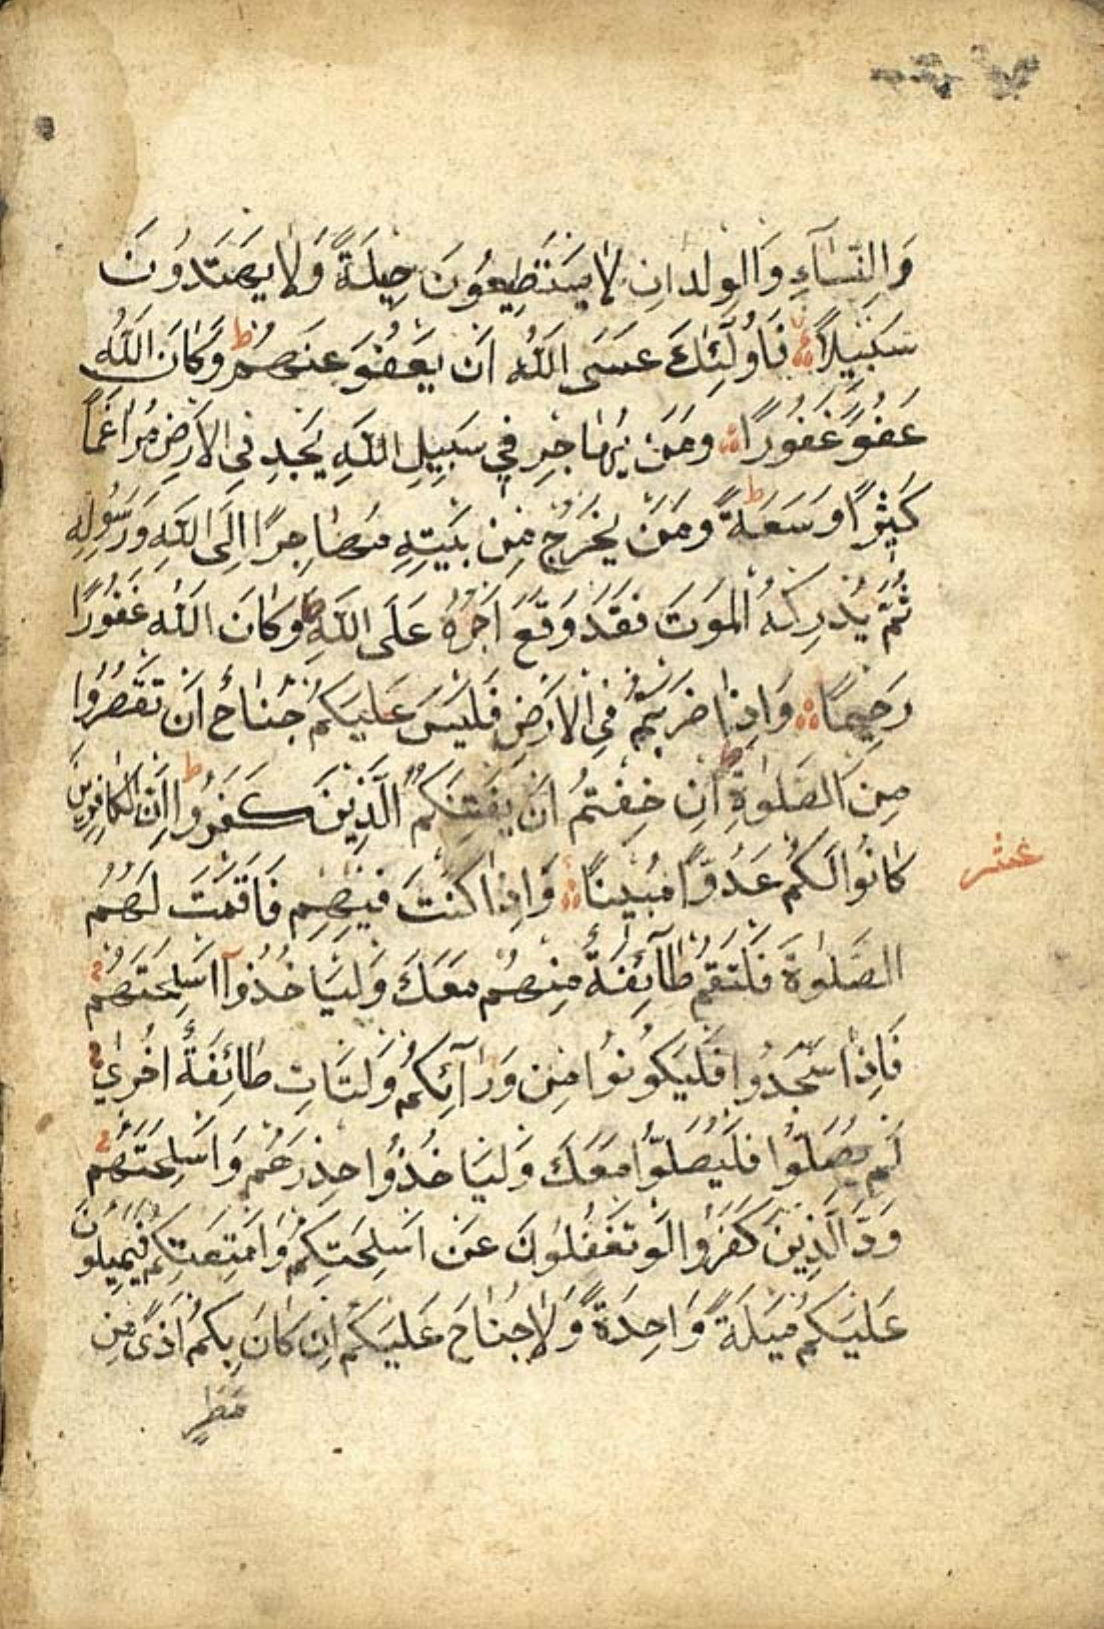 وَالنِّسَآءِ وَالْوِلْدَانِ لَا يَسْتَطِيعُونَ حِيلَةً وَلَا يَهْتَدُونَ
سَبِيلًا فَاُولٰٓئِكَ عَسَى اللّٰهُ اَنْ يَعْفُوَ عَنْهُمْ ط وَكَانَ اللّٰهُ
عَفُوًّا غَفُورًا وَمَنْ يُهَاجِرْ فِي سَبِيلِ اللّٰهِ يَجِدْ فِي الْاَرْضِ مُرَاغَمًا
كَثِيرًا وَسَعَةً ط وَمَنْ يَخْرُجْ مِنْ بَيْتِهِ مُهَاجِرًا اِلَى اللّٰهِ وَرَسُولِهِ
ثُمَّ يُدْرِكْهُ الْمَوْتَ فَقَدْ وَقَعَ اَجْرُهُ عَلَى اللّٰهِ ط وَكَانَ اللّٰهُ غَفُورًا
رَحِيمًا وَاِذَا ضَرَبْتُمْ فِي الْاَرْضِ فَلَيْسَ عَلَيْكُمْ جُنَاحٌ اَنْ تَقْصُرُوا
مِنَ الصَّلٰوةِ ط اِنْ خِفْتُمْ اَنْ يَفْتِنَكُمُ الَّذِينَ كَفَرُوا ط اِنَّ الْكَافِرِينَ
كَانُوا لَكُمْ عَدُوًّا مُبِينًا وَاِذَا كُنْتَ فِيهِمْ فَاَقَمْتَ لَهُمُ
عشر
الصَّلٰوةَ فَلْتَقُمْ طَآئِفَةٌ مِنْهُمْ مَعَكَ وَلْيَاْخُذُوٓا اَسْلِحَتَهُمْ
فَاِذَا سَجَدُوا فَلْيَكُونُوا مِنْ وَرَآئِكُمْ وَلْتَاْتِ طَائِفَةٌ اُخْرٰي
لَمْ يُصَلُّوا فَلْيُصَلُّوا مَعَكَ وَلْيَاْخُذُوا حِذْرَهُمْ وَاَسْلِحَتَهُمْ
وَدَّ الَّذِينَ كَفَرُوا لَوْ تَغْفُلُونَ عَنْ اَسْلِحَتِكُمْ وَاَمْتِعَتِكُمْ فَيَمِيلُونَ
عَلَيْكُمْ مَيْلَةً وَاحِدَةً وَلَا جُنَاحَ عَلَيْكُمْ اِنْ كَانَ بِكُمْ اَذًى مِنْ
مَطَرٍ